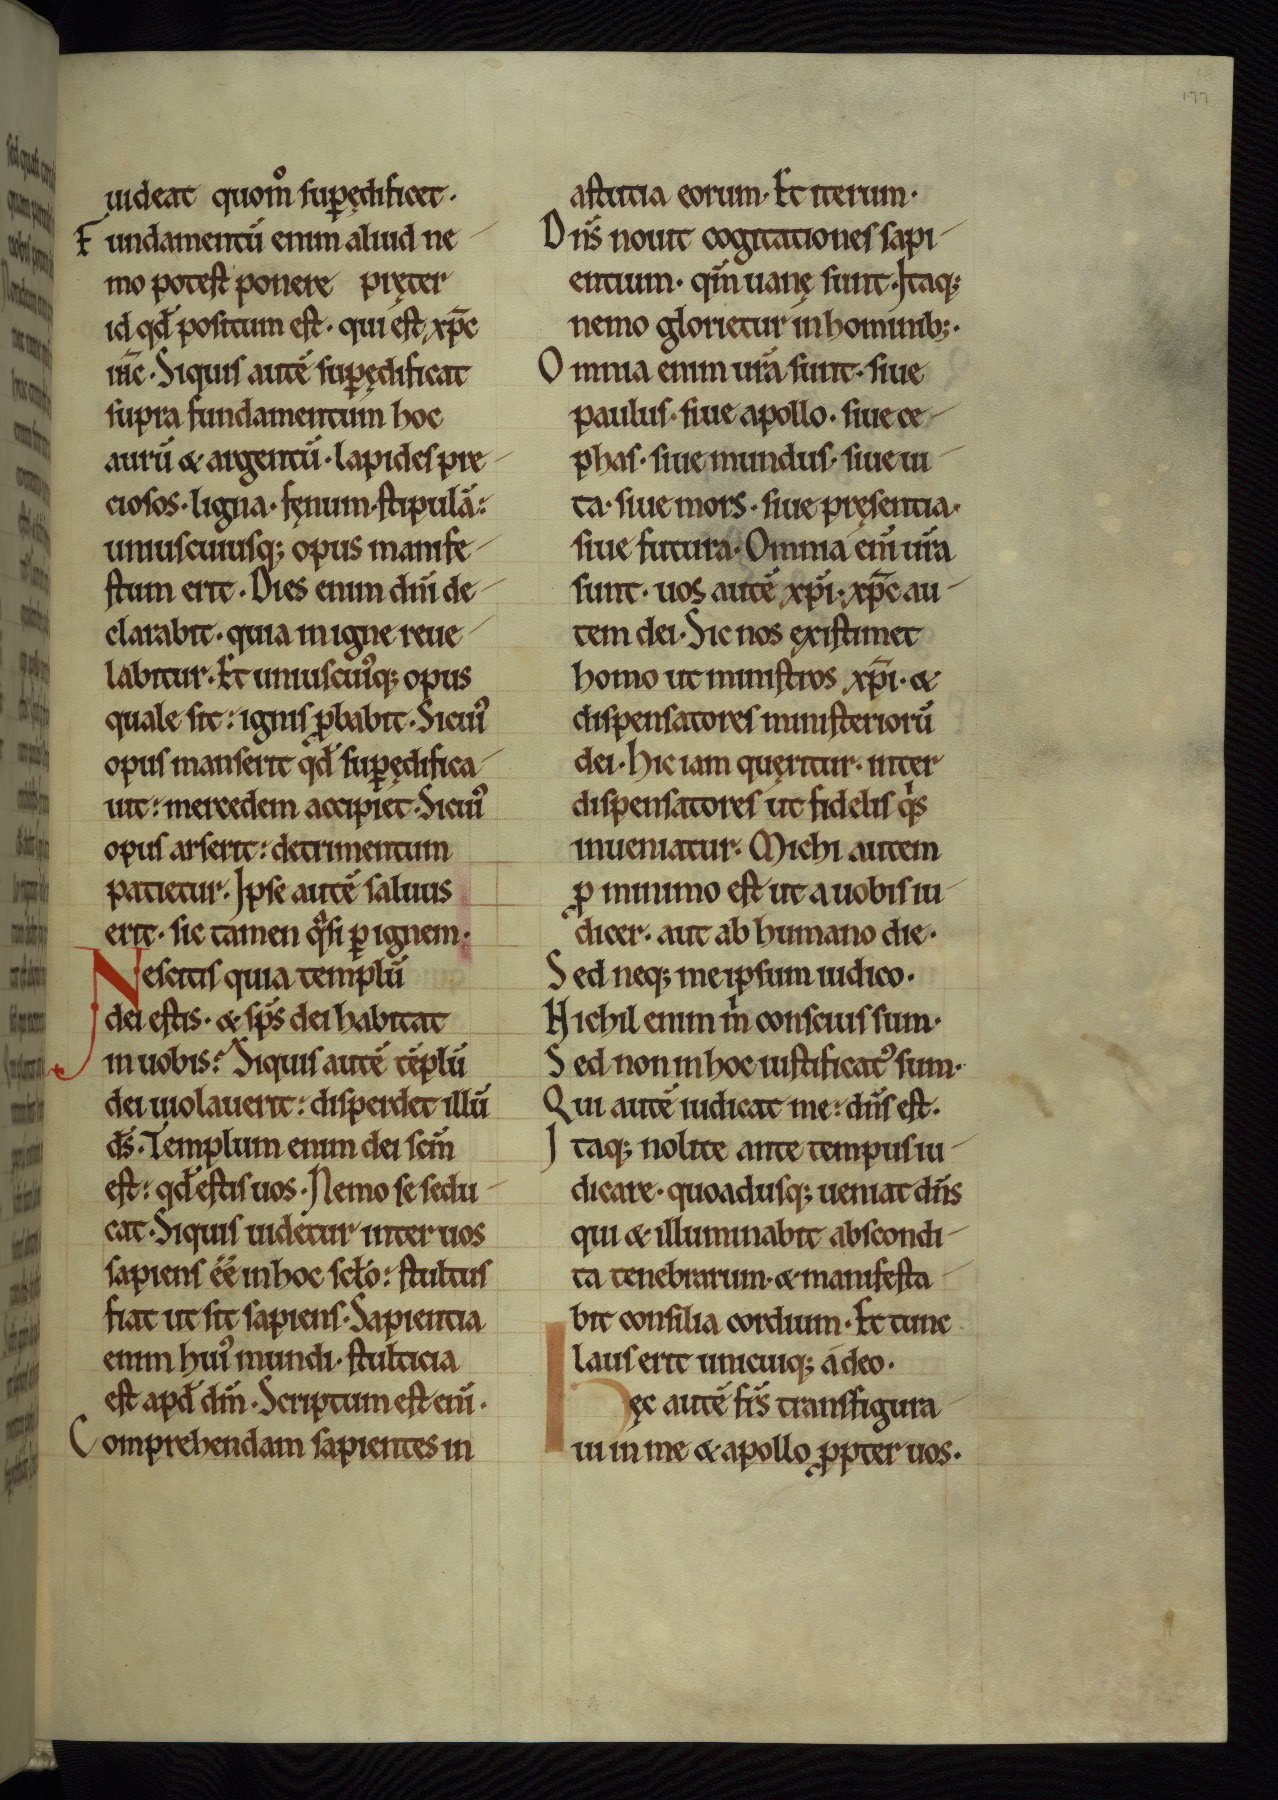 177
uideat quom̊ supędificet·
Fundamentū enim aliud ne
mo potest ponere pręter
id qđ positum est· qui est xp̄c
ih̄c· Siquis autē supędificat
supra fundamentum hoc
aurū & argentū· lapides pre
ciosos· ligna· fęnum· stipulā:
uniuscuiusq; opus manife
stum erit· Dies enim dn̄i de
clarabit· quia in igne reue
labitur· Et uniuscui᾿q; opus
quale sit: ignis ꝓbabit· Sicui᾿
opus manserit qđ supędifica
uit: mercedem accipiet· Sicui᾿
opus arserit: detrimentum
patietur· Ipse autē saluus
erit· sic tamen qͣsi ꝑ ignem·
Nescitis quia templū
dei estis· & sp̄s dei habitat
in uobis: Siquis autē tēplū
dei uiolauerit: disperdet illū
ds̄· Templum enim dei scm̄
est: qđ estis uos· Nemo se sedu
cat· Siquis uidetur inter uos
sapiens ēē in hoc scło: stultus
fiat ut sit sapiens· Sapientia
enim hui᾿ mundi· stulticia
est apđ dm̄· Scriptum est eni̅·
Comprehendam sapientes in
astutia eorum· Et iterum·
Dn̄s nouit cogitationes sapi
entium· qm̄ uanę sunt· Itaq;
nemo glorietur in hominib;·
Omnia enim ur̄a sunt· siue
paulus· siue apollo· siue ce
phas· siue mundus· siue ui
ta· siue mors· siue pręsentia·
siue futura· Omnia eni̅ ur̄a
sunt· uos autē xp̄i· xp̄c au
tem dei· Sic nos existimet
homo ut ministros xp̄i· &
dispensatores ministeriorū
dei· Hic iam quęritur· inter
dispensatores ut fidelis qͥs
inueniatur· Michi autem
ꝓ minimo est ut a uobis iu
dicer· aut ab humano die·
Sed neq; meipsum iudico·
Nichil enim mͥ conscius sum·
Sed non in hoc iustificat᾿ sum·
Qui autē iudicat me: dn̄s est·
Itaq; nolite ante tempus iu
dicare· quoadusq; ueniat dn̄s
qui & illuminabit abscondi
ta tenebrarum· & manifesta
bit consilia cordium· Et tunc
laus erit unicuiq; a deo·
Hęc autē fr̄s transfigura
ui in me & apollo ꝓpter uos·